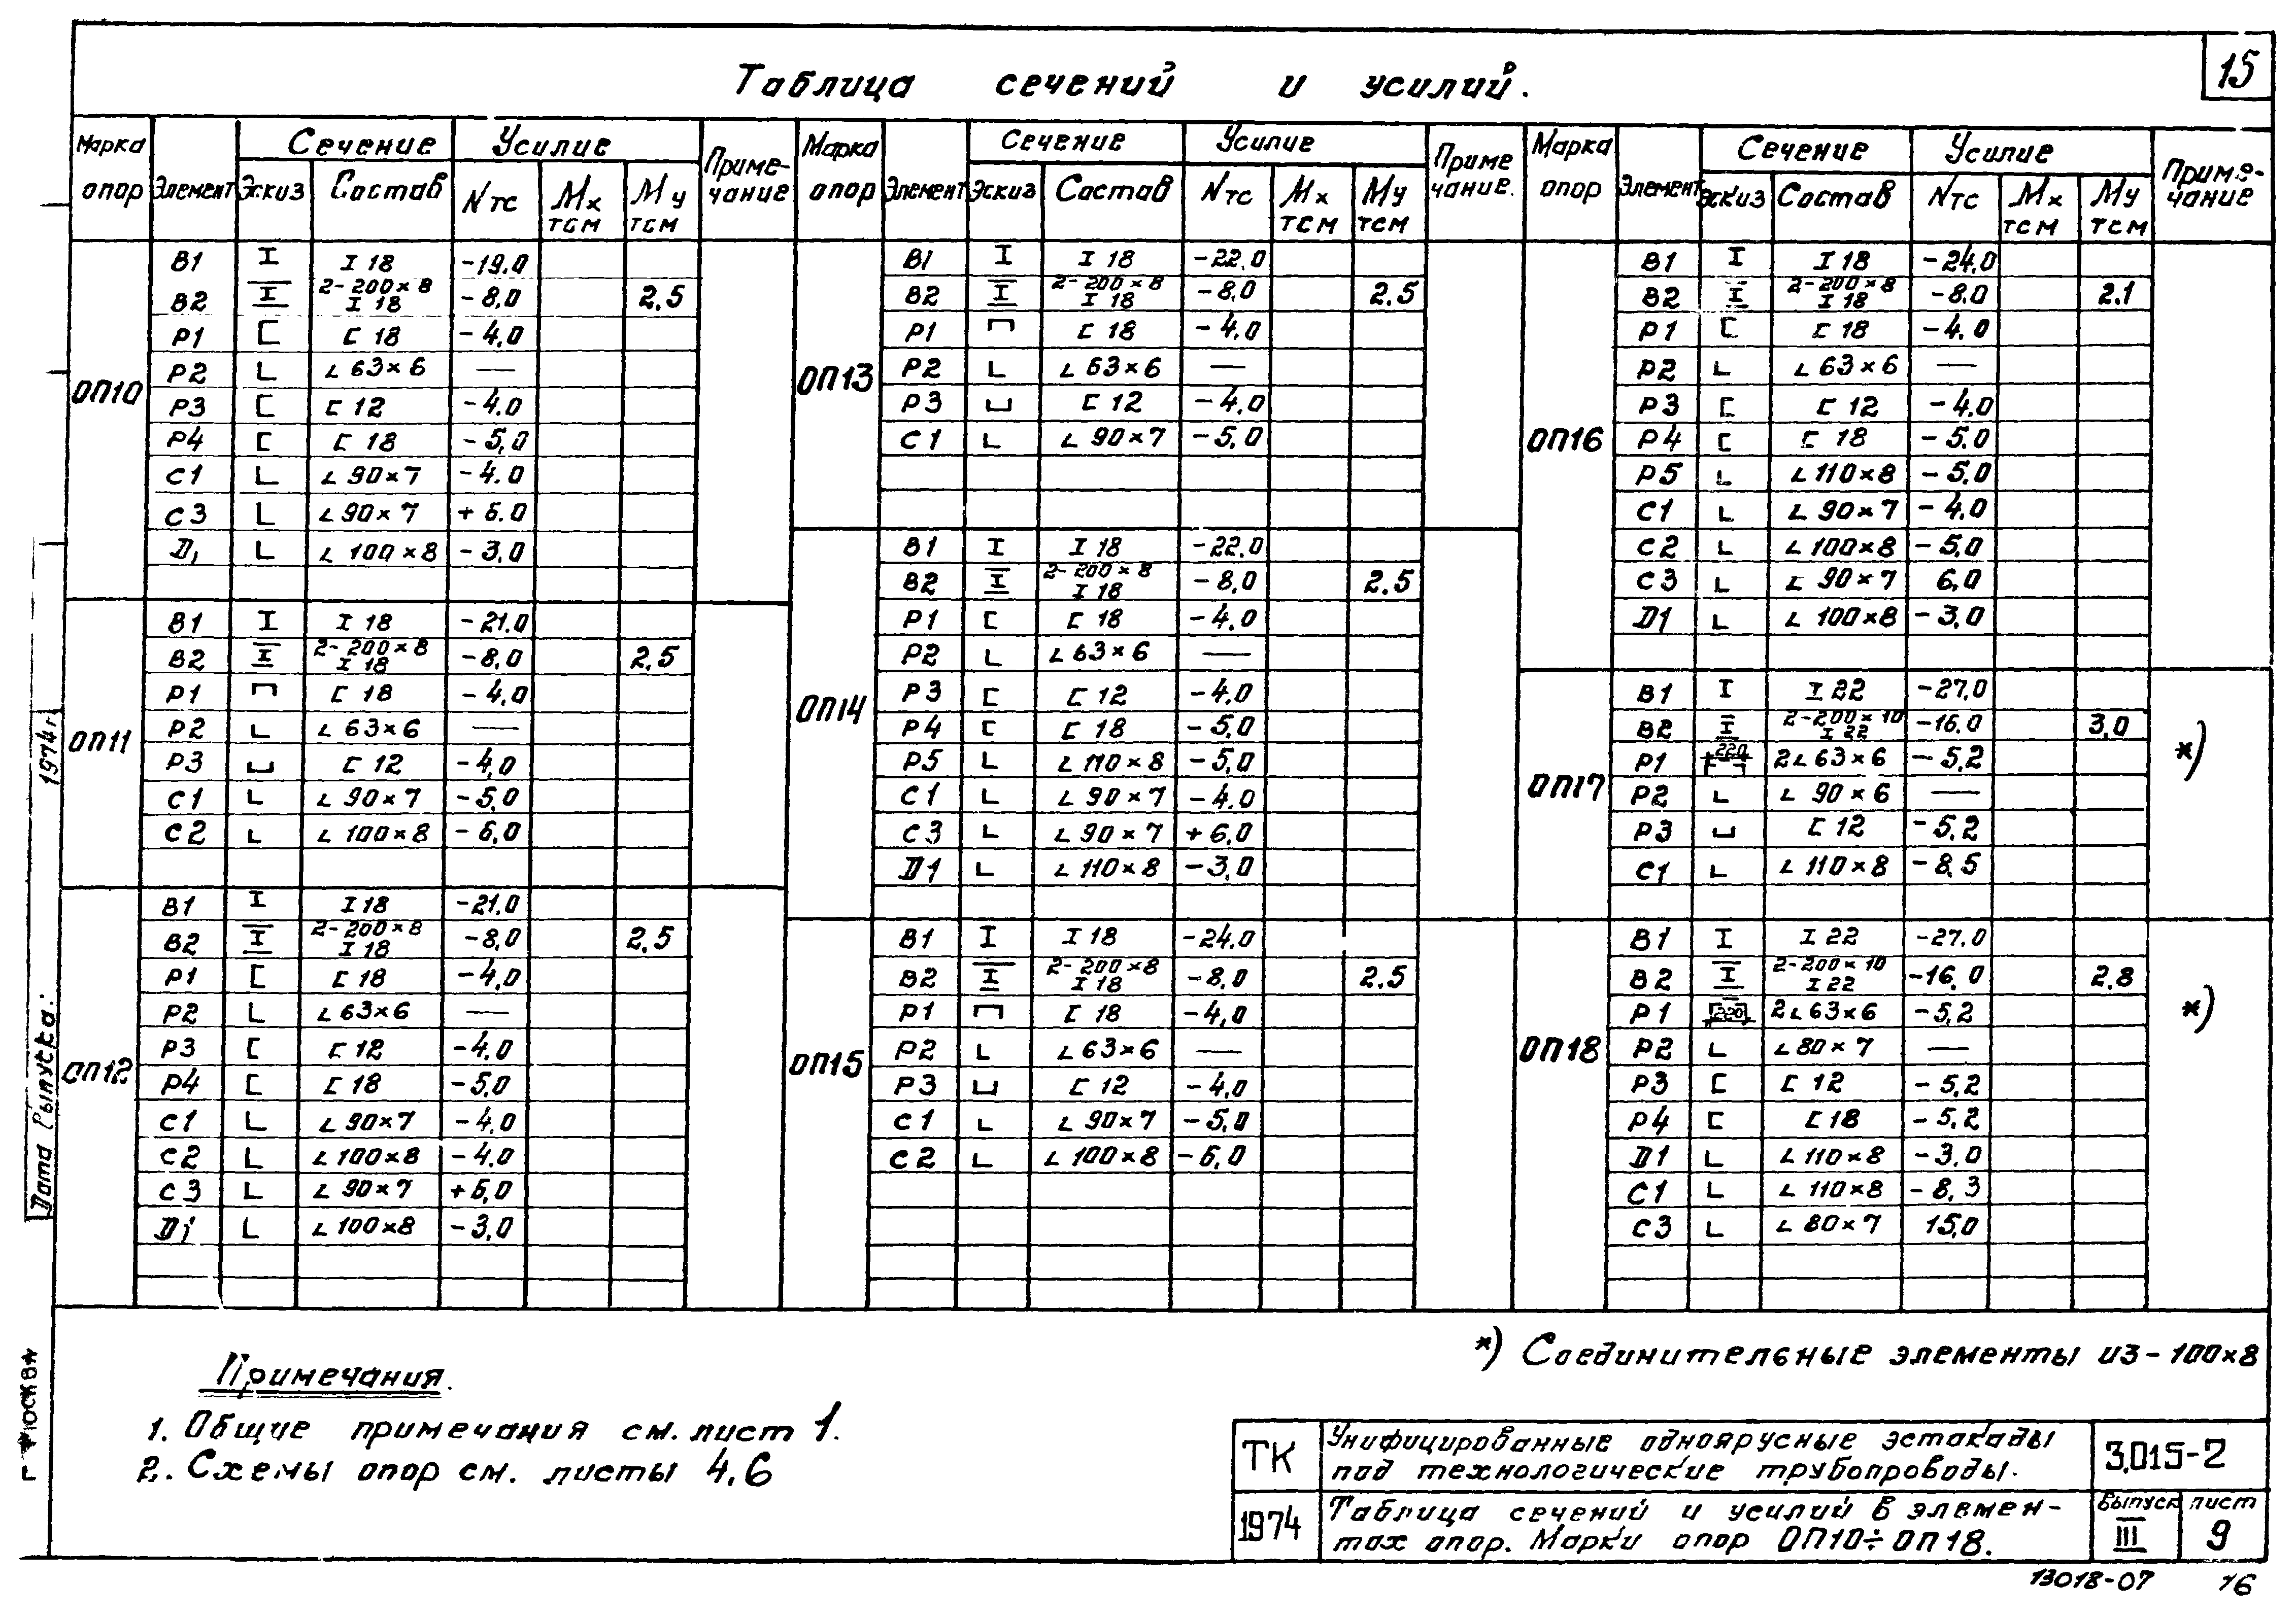 15
Таблица сечений и усилий.
Марка опор Элемент Сечение Усилие Приме-чание
Эскиз Состав Nтс Mx тсм My тсм
ОП10
В1 I 18 -19.0
В2 2-200×8 I 18 -8,0 2.5
Р1 [ 18 -4,0
Р2 L 63×6 —
Р3 [ 12 -4.0
Р4 [ 18 -5,0
С1 L 90×7 -4.0
С3 L 90×7 +6.0
D1 L 100×8 -3,0
ОП11
В1 I 18 -21.0
В2 2-200×8 I 18 -8,0 2,5
Р1 [ 18 -4,0
Р2 L 63×6 —
Р3 [ 12 -4,0
С1 L 90×7 -5,0
С2 L 100×8 -6,0
ОП12
В1 I 18 -21.0
В2 2-200×8 I 18 -8,0 2,5
Р1 [ 18 -4,0
Р2 L 63×6 —
Р3 [ 12 -4.0
Р4 [ 18 -5,0
С1 L 90×7 -4,0
С2 L 100×8 -4,0
С3 L 90×7 +6,0
D1 L 100×8 -3,0
Марка опор Элемент Сечение Усилие Приме чание.
Эскиз Состав Nтс Mx тсм My тсм
ОП13
В1 I 18 -22.0
В2 2-200×8 I 18 -8,0 2.5
Р1 [ 18 -4.0
Р2 L 63×6 —
Р3 [ 12 -4,0
С1 L 90×7 -5,0
ОП14
В1 I 18 -22.0
В2 2-200×8 I 18 -8,0 2.5
Р1 [ 18 -4,0
Р2 L 63×6 —
Р3 [ 12 -4.0
Р4 [ 18 -5,0
Р5 L 110×8 -5,0
С1 L 90×7 -4.0
С3 L 90×7 +6,0
D1 L 110×8 -3,0
ОП15
В1 I 18 -24,0
В2 2-200×8 I 18 -8,0 2.5
Р1 [ 18 -4,0
Р2 L 63×6 —
Р3 [ 12 -4,0
С1 L 90×7 -5,0
С2 L 100×8 -6,0
Марка опор Элемент Сечение Усилие Приме-чание
Эскиз Состав Nтс Mx тсм My тсм
ОП16
В1 I 18 -24,0
В2 2-200×8 I 18 -8,0 2.1
Р1 [ 18 -4.0
Р2 L 63×6 —
Р3 [ 12 -4.0
Р4 [ 18 -5.0
Р5 L 110×8 -5,0
С1 L 90×7 -4.0
С2 L 100×8 -5,0
С3 L 90×7 6,0
D1 L 100×8 -3,0
ОП17 *)
В1 I 22 -27,0
В2 2-200×10 I 22 -16.0 3,0
Р1 220 2L 63×6 -5,2
Р2 L 90×6 —
Р3 [ 12 -5,2
С1 L 110×8 -8,5
ОП18 *)
В1 I 22 -27.0
В2 2-200×10 I 22 -16,0 2,8
Р1 220 2L 63×6 -5,2
Р2 L 80×7 —
Р3 [ 12 -5,2
Р4 [ 18 -5,2
D1 L 110×8 -3,0
С1 L 110×8 -8,3
С3 L 80×7 15,0
*) Соединительные элементы из -100×8
Примечания.
1. Общие примечания см. лист 1.
2. Схемы опор см. листы 4,6
ТК
Унифицированные одноярусные эстакады
под технологические трубопроводы.
3.015-2
1974
Таблица сечений и усилий в элемен-
тах опор. Марки опор ОП10÷ОП18.
Выпуск лист
III 9
13018-07 16
Дата выпуска: 1974г.
г Москва